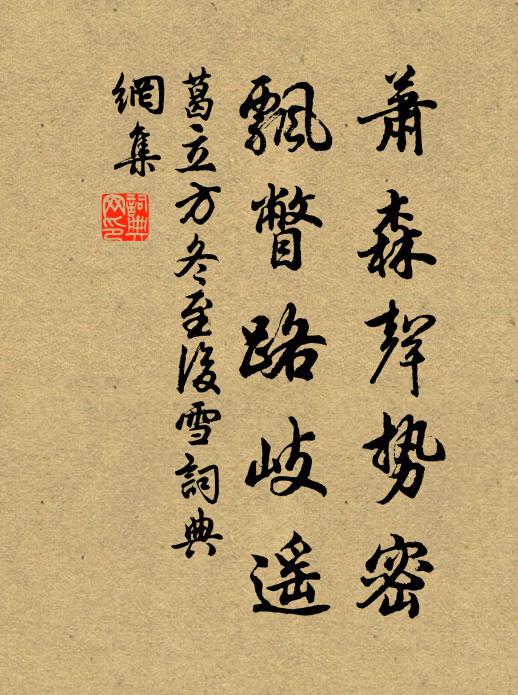 蕭森聲勢密
飄瞥路歧遙
葛立方冬至後雪詞典
網集
詞典
网印